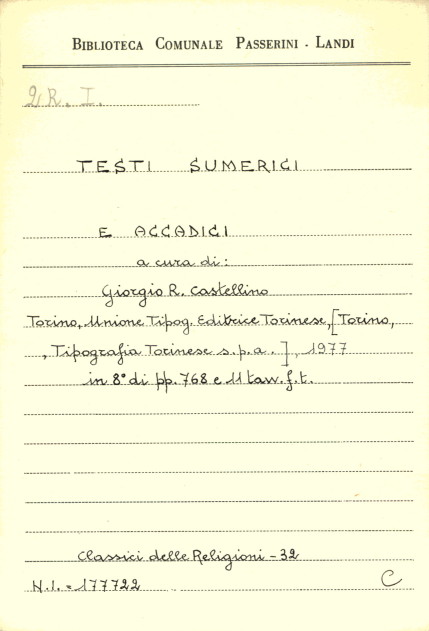 BIBLIOTECA COMUNALE PASSERINI - LANDI
2 R. I.
TESTI SUMERICI
E ACCADICI
a cura di:
Giorgio R. Castellino
Torino, Unione Tipog. Editrice Torinese, [Torino,
, Tipografia Torinese s.p.a.], 1977
in 8° di pp. 768 e 11 taw. f.t.
Classici delle Religioni - 32
N.I. = 177722
C